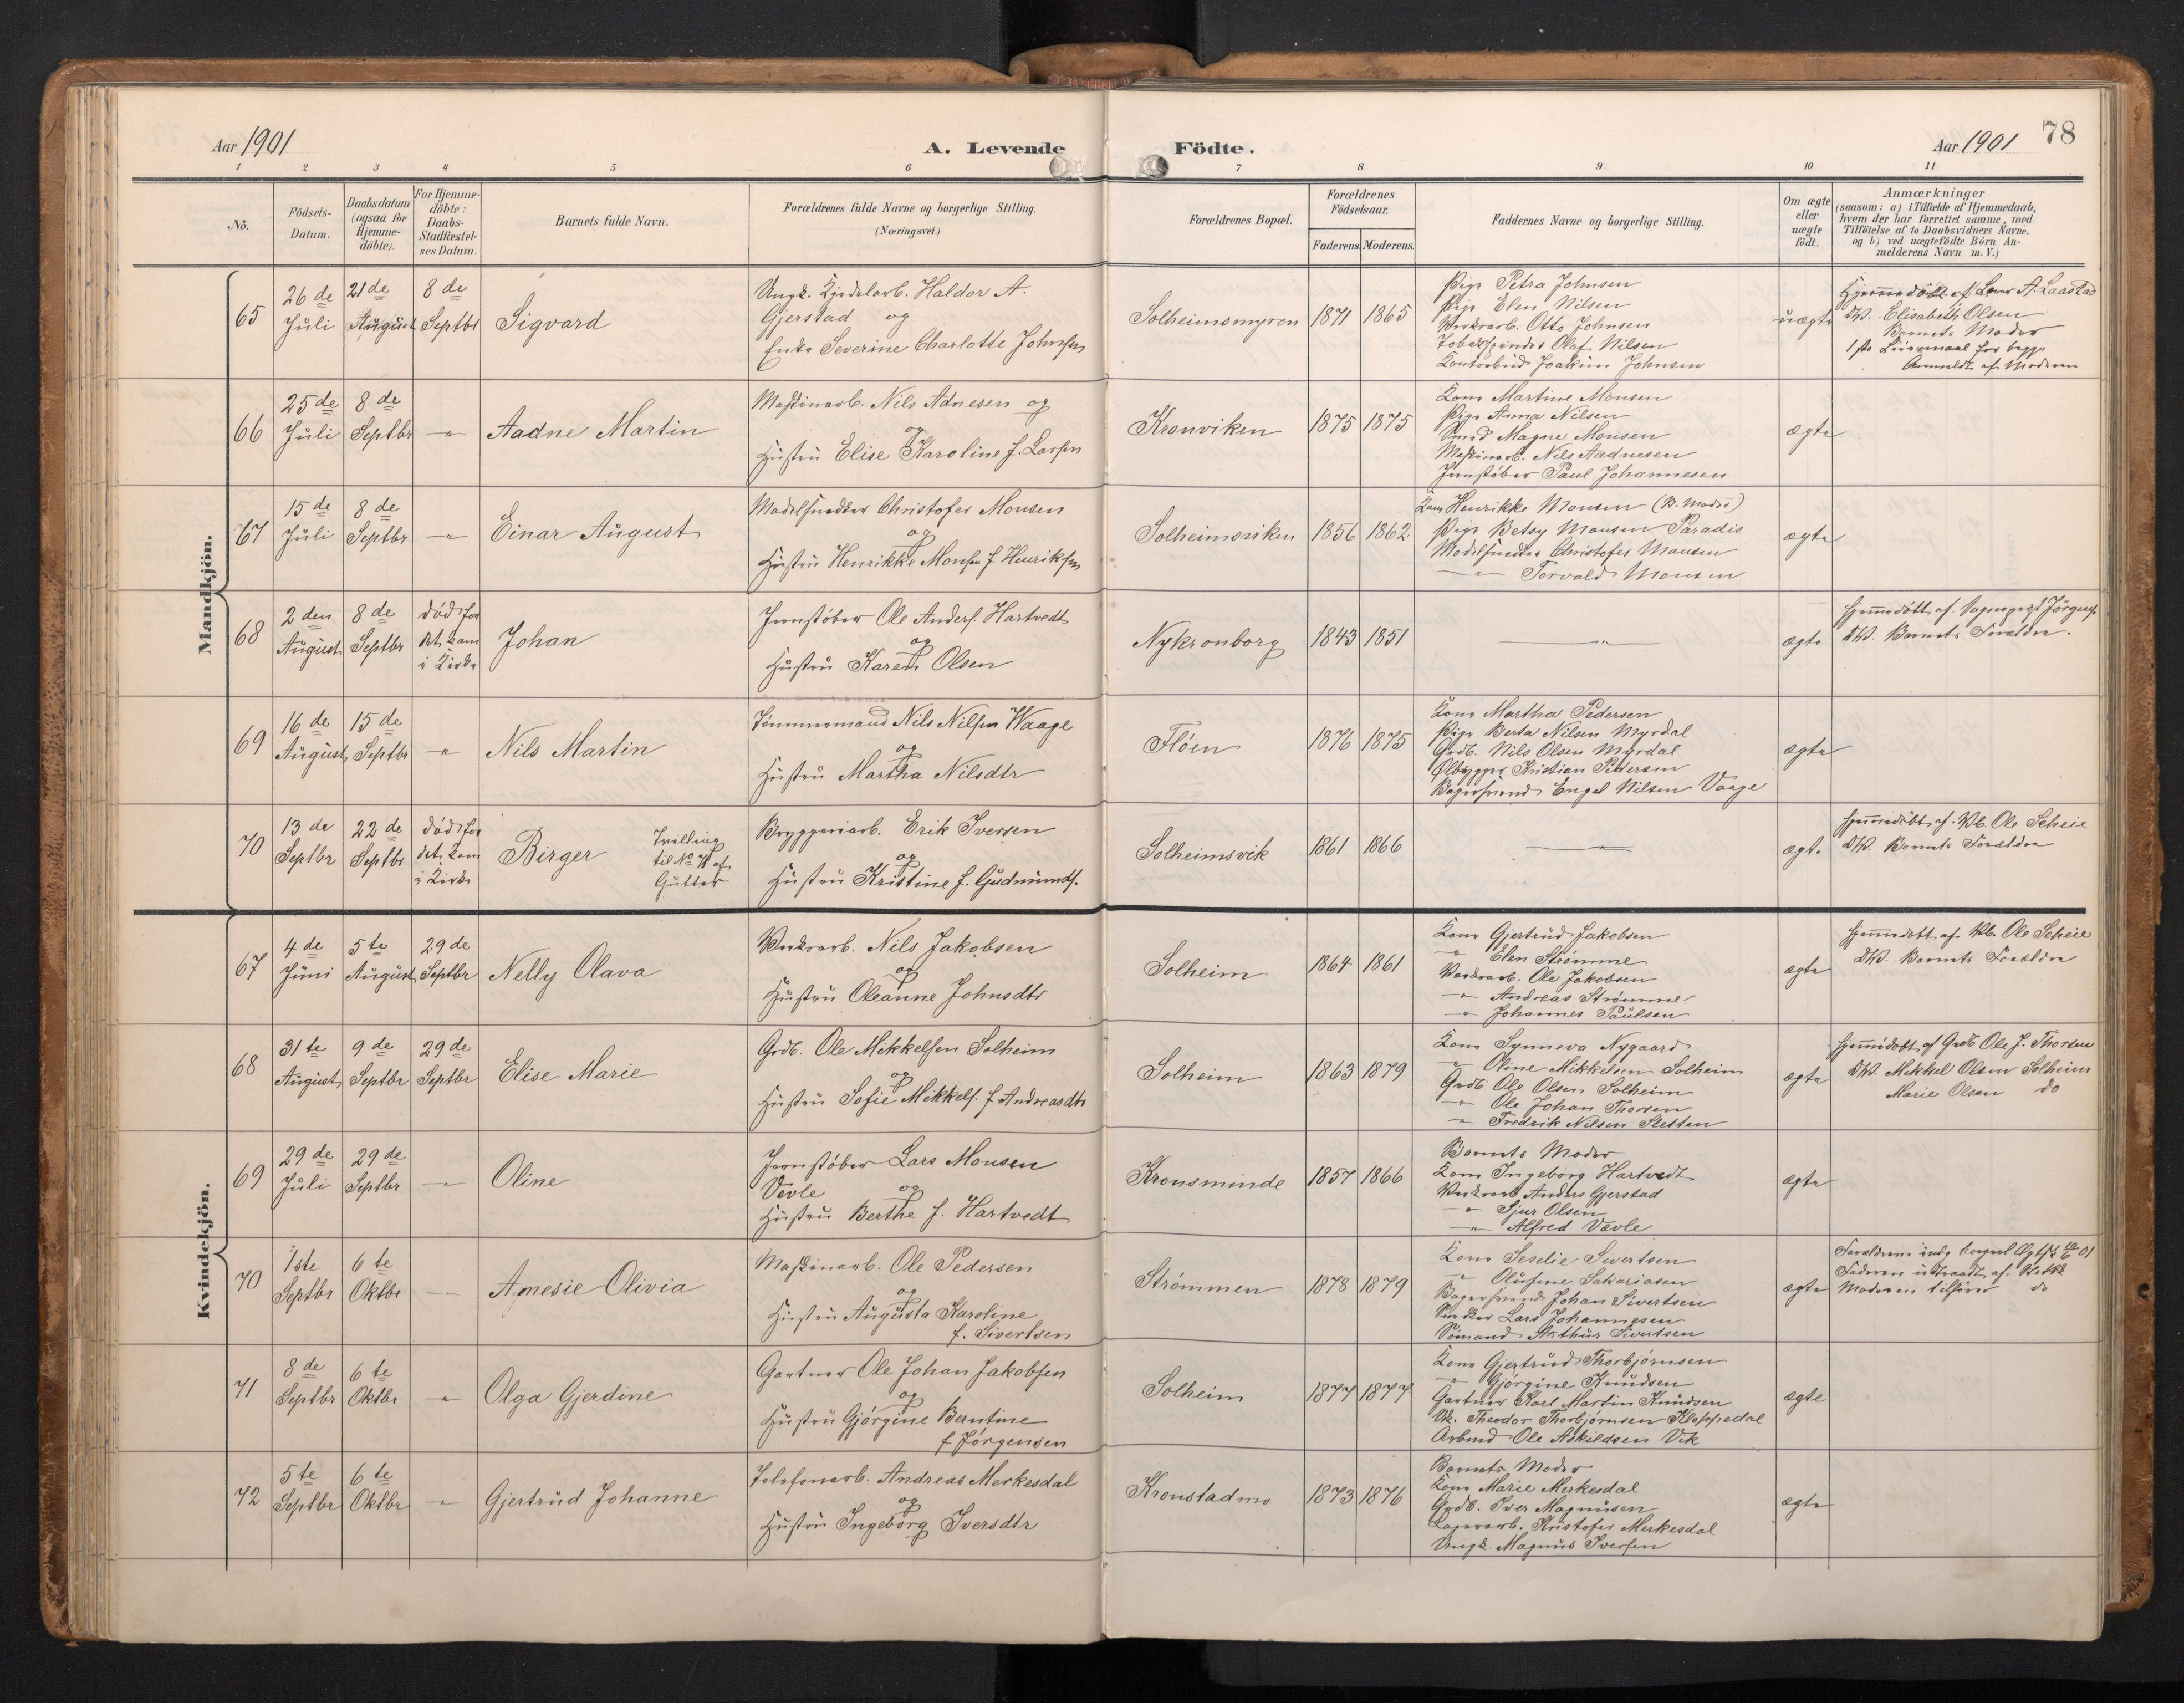 Aar 1901
A. Levende Födte.
Aar 1901
78
1 2 3 4 5 6 7 8 9 10 11
No.
Födsels-
Datum.
Daabsdatum
(ogsaa for
Hjemme-
döbte).
For Hjemme-
döbte:
Daabs-
Stadfæstel-
ses Datum.
Barnets fulde Navn.
Forældrenes fulde Navne og borgerlige Stilling.
(Næringsvei.)
Forældrenes Bopæl.
Forældrenes
Födselsaar.
Faderens.
Moderens.
Faddernes Navne og borgerlige Stilling.
Om ægte
eller
uægte
födt.
Anmærkninger
(saasom: a) i Tilfælde af Hjemmedaab,
hvem der har forrettet samme, med
Tilföielse af to Daabsvidners Navne.
og b) ved uægtefödte Börn An-
melderens Navn m. V.)
Mandkjön.
65
26 de
Juli
21 de
August
8 de
Septbr
Sigvard
Ungk. Kjedelarb. Haldor A.
Gjerstad og
Enke Severine Charlotte Johnsen
Solheimsmyren
1871
1865
Pige Petra Johnsen
Pige Elen Nilsen
Verksarb. Otto Johnsen
Olaf Nilsen
Kontorbud Joakim Johnsen
uægte
Hjemmedöbt af A. Laastad
DW. Elisabeth Olsen
Barnets Moder
1ste Leiermaal for begge
Anmeldt af Moderen
66
25 de
Juli
8 de
Septbr
"
Aadne Martin
Maskinarb. Nils Adnesen og
og
Hustru Elise Karoline f. Larsen
Kronviken
1875
1875
Kone Martine Monsen
Pige Anna Nilsen
Smed Magne Monsen
Maskinarb. Nils Aadnesen
Jernstöber Paul Johannesen
ægte
67
15 de
Juli
8 de
Septbr
"
Einar August
Modelsnedker Christofer Monsen
og
Hustru Henrikke Monsen f Henriksen
Solheimsviken
1856
1862
Kone Henrikke Monsen (B. Moder)
Pige Betsy Monsen Paradis
Modelsnedker Christofer Monsen
" Torvald Monsen
ægte
68
2 den
August
8 de
Septbr
död for
det kom
i Kirke
Johan
Jernstöber Ole Anders. Hartvedt
og
Hustru Karen Olsen
Nykronborg
1843
1851
"
ægte
Hjemmedöbt af Jörgens.
DW. Barnets Forældre.
69
16 de
August
15 de
Septbr
"
Nils Martin
Tømmermand Nils Nilsen Waage
og
Hustru Martha Nilsdtr
Flöen
1876
1875
Kone Martha Pedersen
Pige Berta Nilsen Myrdal
Grdb. Nils Olsen Myrdal
Ølbrygger Kristian Pedersen
Bagersvend Engel Nilsen Vaage
ægte
70
13 de
Septbr
22 de
Septbr
död for
det kom
i Kirke
Birger
Tvilling
til No 71 af
Gutter
Bryggeriarb. Erik Iversen
og
Hustru Kristine f. Gudmunds.
Solheimsvik
1861
1866
"
ægte
Hjemmedöbt af Kb. Ole Scheie
DW. Barnets Forældre
Kvindekjön.
67
4 de
Juni
5 te
August
29 de
Septbr
Nelly Olava
Verksarb. Nils Jakobsen
og
Hustru Oleanne Johnsdtr
Solheim
1864
1861
Kone Gjertrud Jakobsen
" Elen Strømme
Verksarb. Ole Jakobsen
" Andreas Strømme
" Johannes Paulsen
ægte
Hjemmedöbt af Kb. Ole Scheie
DW. Barnets Forældre
68
31 te
August
9 de
Septbr
29 de
Septbr
Elise Marie
Grdb. Ole Mikkelsen Solheim
og
Hustru Sofie Mikkels. f Andreasdtr
Solheim
1863
1879
Kone Synneva Nygaard
" Oline Mikkelsen Solheim
Grdb Ole Olsen Solheim
" Ole Johan Thorsen
" Fredrik Nilsen Sletten
ægte
Hjemmedöbt af Grdb Ole J. Thorsen
DW. Mikkel Olsen Solheim
Marie Olsen do
69
29 de
Juli
29 de
Septbr
"
Oline
Jernstöber Lars Monsen
Vevle og
Hustru Berthe f. Hartvedt
Kronsminde
1857
1866
Barnets Moder
Kone Ingeborg Hartvedt
Verksarb Anders Gjerstad
" Sjur Olsen
" Alfred Vævle
ægte
70
1ste
Septbr
6 te
Oktbr
"
Amesie Olivia
Maskinarb. Ole Pedersen
og
Hustru Augusta Karoline
f. Sivertsen
Strømmen
1878
1879
Kone Seselie Sivertsen
" Olufine Sakariasen
Bagersvend Johan Sivertsen
Snedker Lars Johannesen
Sømand Arthur Sivertsen
ægte
Forældrene indg. borgerl. Ægtsk 01
Faderen udtraadt af Statsk
Moderen tilhører do
71
8 de
Septbr
6 te
Oktbr
"
Olga Gjerdine
Gartner Ole Johan Jakobsen
og
Hustru Gjørgine Berntine
f Jørgensen
Solheim
1877
1877
Kone Gjertrud Thorbjørnsen
" Gjørgine Knudsen
Gartner Karl Martin Knudsen
Uk. Theodor Thorbjørnsen Kloppedal
Arbmd Ole Askildsen Vik
ægte
72
5 te
Septbr
6 te
Oktbr
"
Gjertrud Johanne
Telefonarb. Andreas Merkesdal
og
Hustru Ingeborg Iversdtr
Kronstadmo
1873
1876
Barnets Moder
Kone Marie Merkesdal
Grdb. Iver Magnusen
Lagerarb. Kristofer Merkesdal
Ungk. Magnus Iversen
ægte